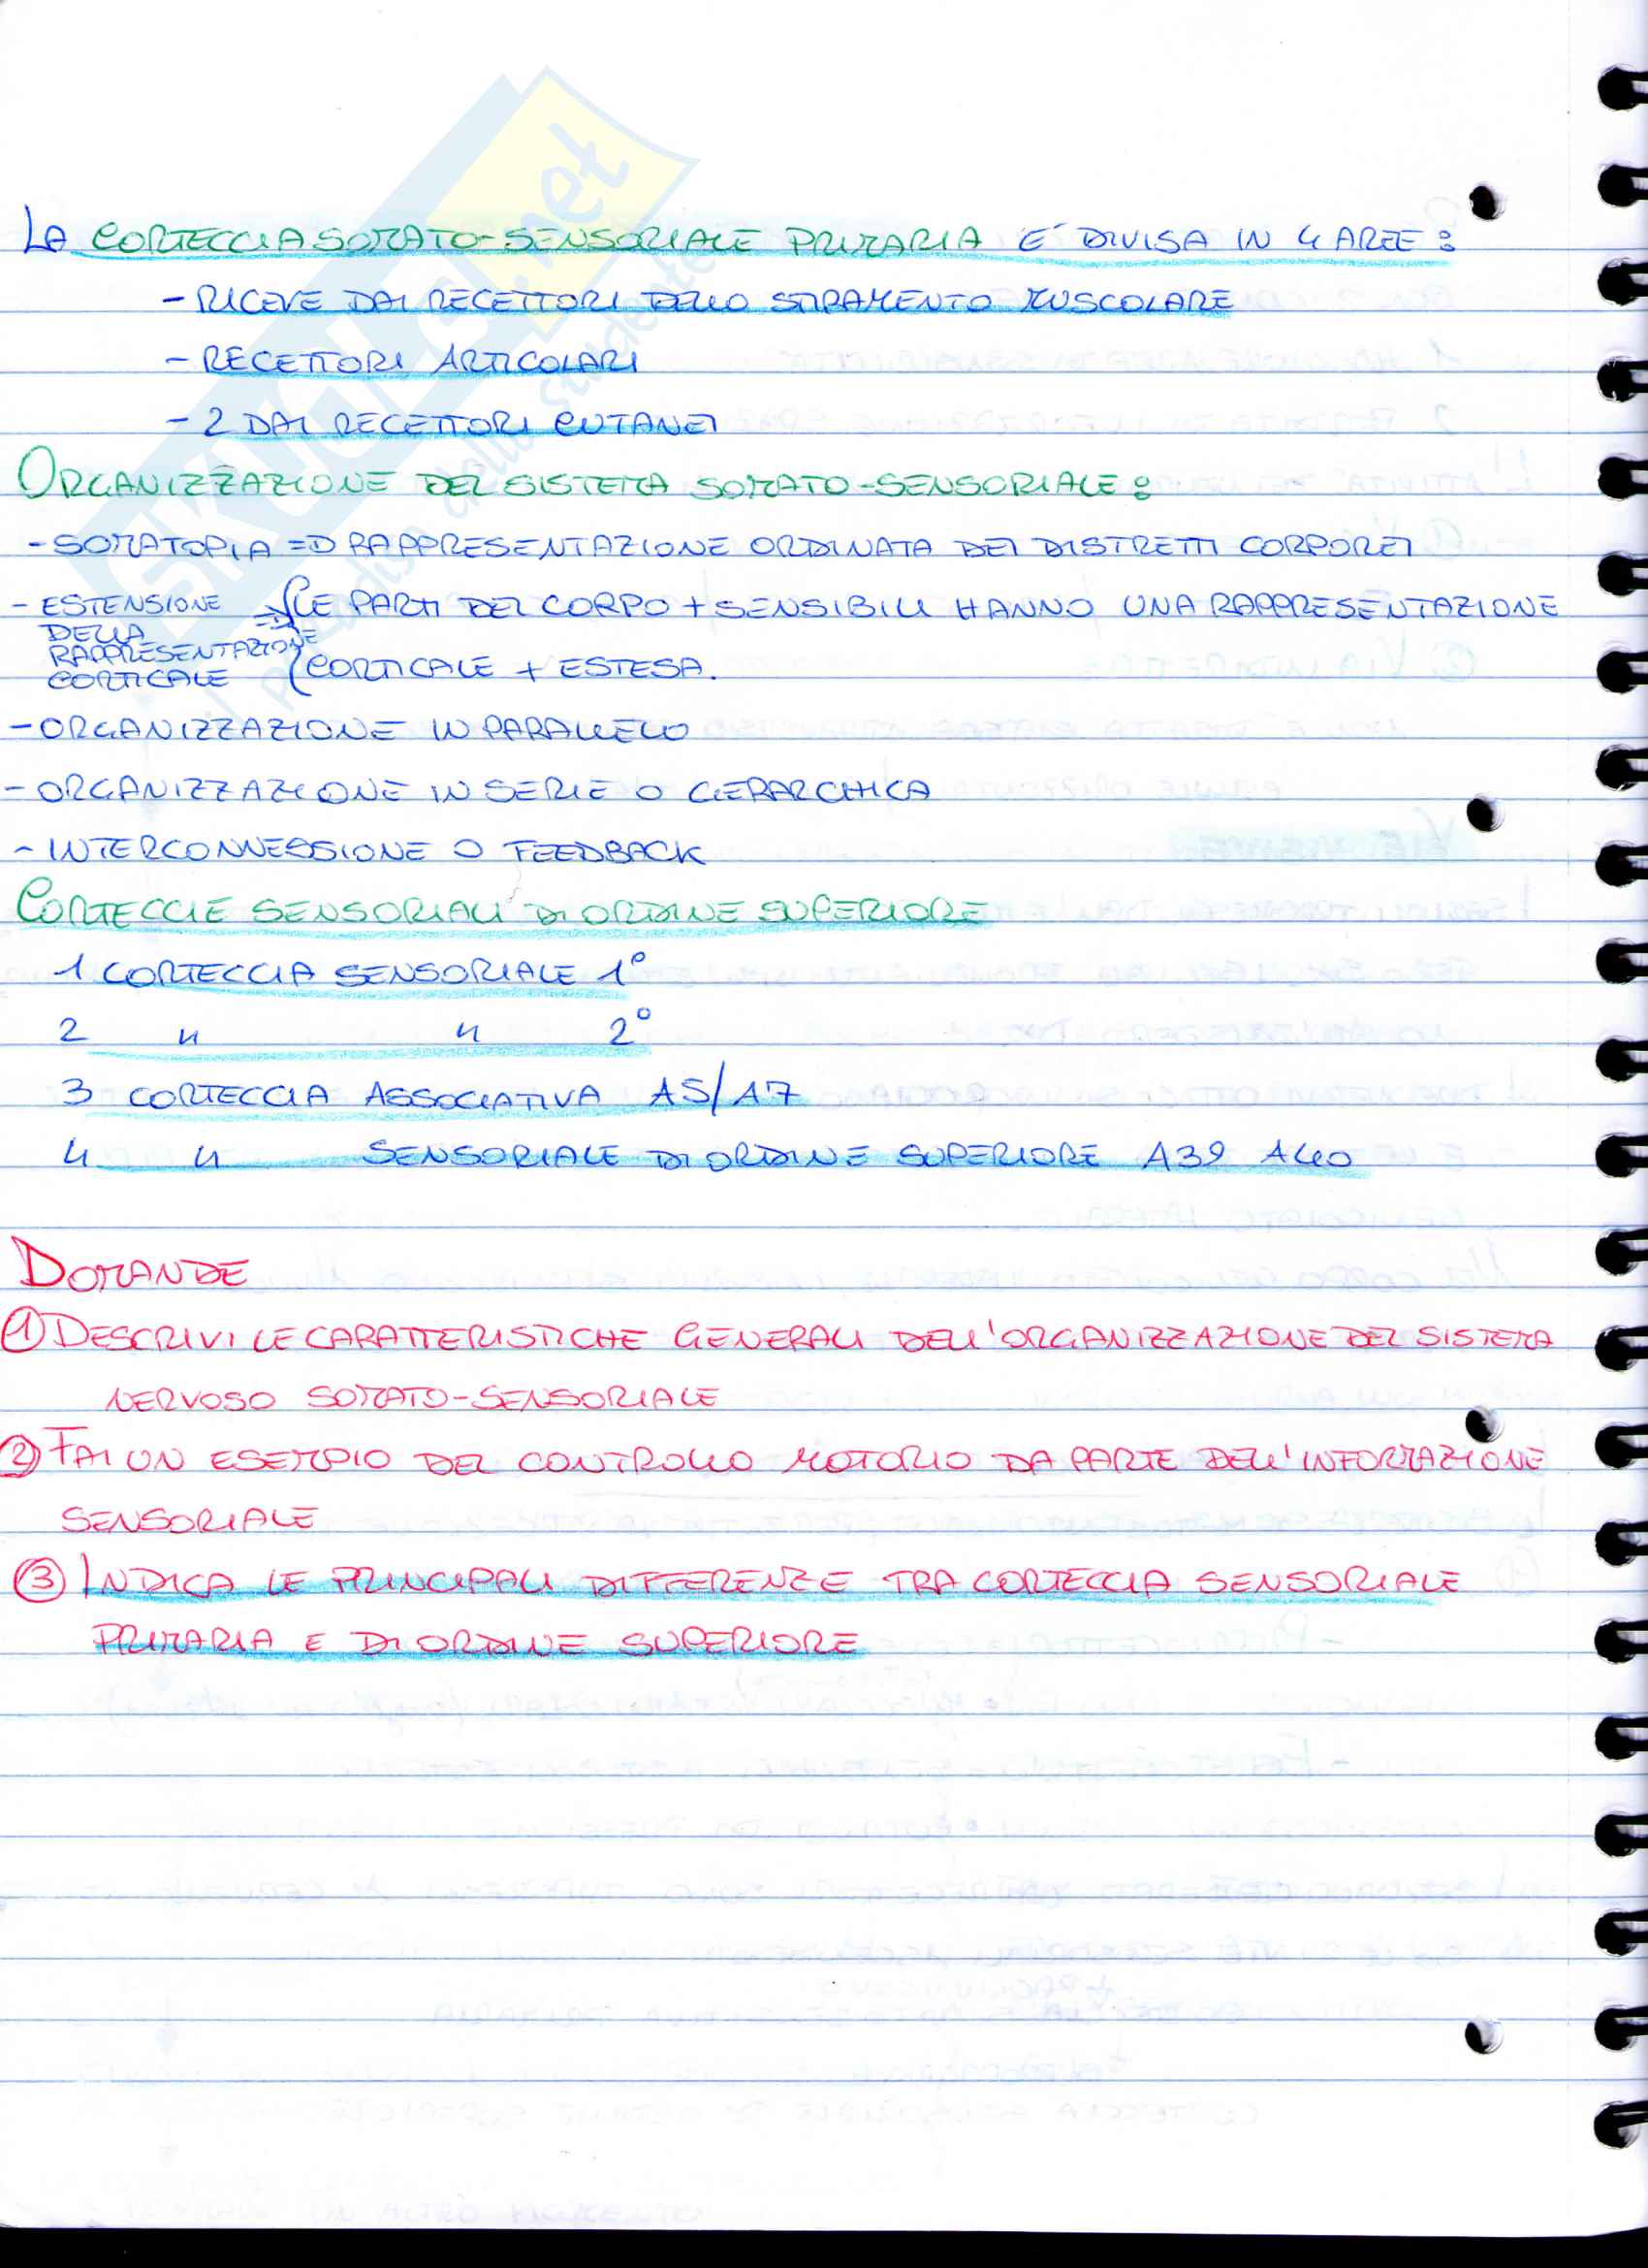 LA CORTECCIA SOMATO-SENSORIALE PRIMARIA E' DIVISA IN 4 AREE:
- RICEVE DAI RECETTORI DELLO STIRAMENTO MUSCOLARE
- RECETTORI ARTICOLARI
- 2 DAI RECETTORI CUTANEI
ORGANIZZAZIONE DEL SISTEMA SOMATO-SENSORIALE:
- SOMATOPIA => RAPPRESENTAZIONE ORDINATA DEI DISTRETTI CORPOREI
- ESTENSIONE DELLA RAPPRESENTAZIONE CORTICALE => LE PARTI DEL CORPO + SENSIBILI HANNO UNA RAPPRESENTAZIONE
CORTICALE + ESTESA.
- ORGANIZZAZIONE IN PARALLELO
- ORGANIZZAZIONE IN SERIE O GERARCHICA
- INTERCONNESSIONE O FEEDBACK
CORTECCIE SENSORIALI DI ORDINE SUPERIORE
1 CORTECCIA SENSORIALE 1°
2 " " 2°
3 CORTECCIA ASSOCIATIVA A5/A7
4 " SENSORIALE DI ORDINE SUPERIORE A39 A40
DOMANDE
① DESCRIVI LE CARATTERISTICHE GENERALI DELL'ORGANIZZAZIONE DEL SISTEMA
NERVOSO SOMATO-SENSORIALE
② FAI UN ESEMPIO DEL CONTROLLO MOTORIO DA PARTE DELL'INFORMAZIONE
SENSORIALE
③ INDICA LE PRINCIPALI DIFFERENZE TRA CORTECCIA SENSORIALE
PRIMARIA E DI ORDINE SUPERIORE
SKUOLA.net